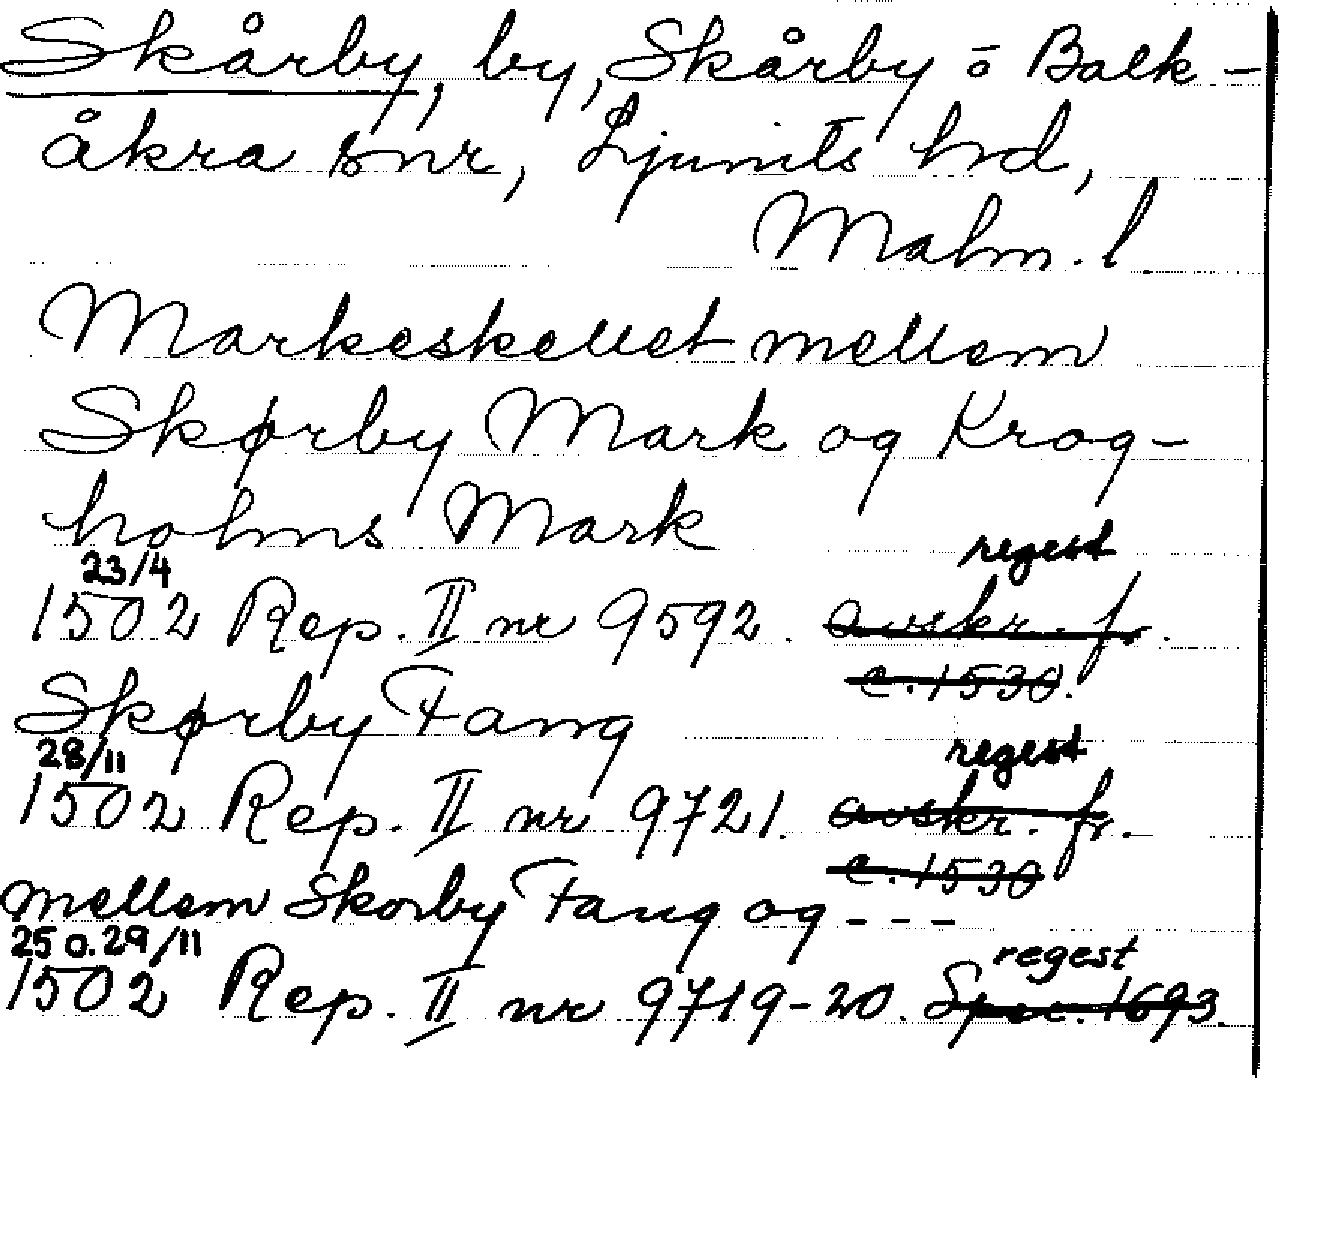 Skårby, by, Skårby o Balk-
åkra snr, Ljunits hd,
Malm. l
Markeskellet mellem
Skørby Mark og Krog-
holms Mark
regest
23/4
1502 Rep. II nr 9592. avskr. fr.
c. 1530.
Skørby Fang
regest
28/11
1502 Rep. II nr 9721. avskr. fr.
c. 1530
mellem Skorby Fang og ----
25 o. 29/11
regest
1502 Rep. II nr 9719-20. Spec. 1693.